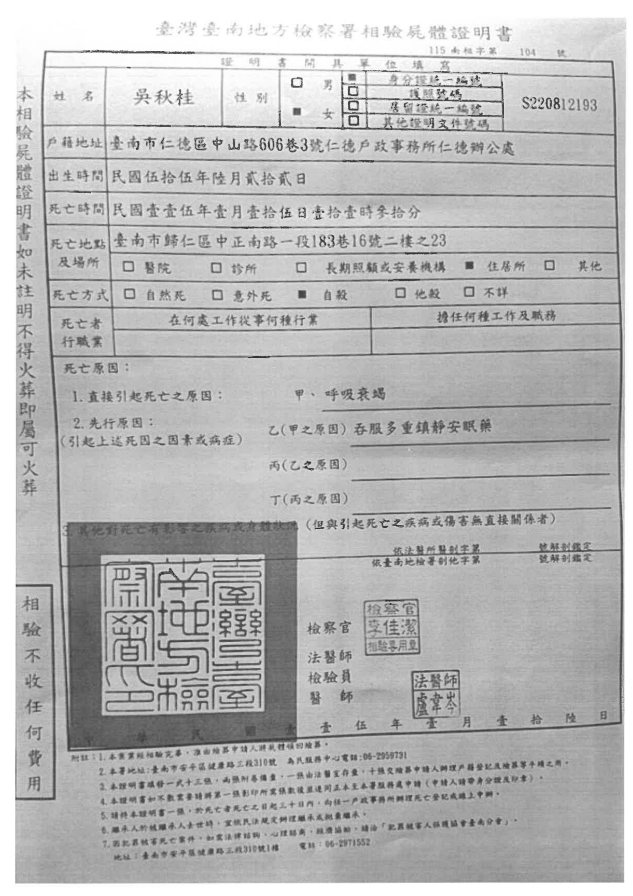 臺灣臺南地方檢察署相驗屍體證明書
115 南相字第 104 號
證明書開具單位填寫
姓名 吳秋桂 性別 □ 男 ■ 女
■ 身分證統一編號
□ 護照號碼
□ 居留證統一編號
□ 其他證明文件號碼
S220812193
戶籍地址 臺南市仁德區中山路606巷3號仁德戶政事務所仁德辦公處
出生時間 民國伍拾伍年陸月貳拾貳日
死亡時間 民國壹壹伍年壹月壹拾伍日壹拾壹時參拾分
死亡地點及場所 臺南市歸仁區中正南路一段183巷16號二樓之23
□ 醫院 □ 診所 □ 長期照顧或安養機構 ■ 住居所 □ 其他
死亡方式 □ 自然死 □ 意外死 ■ 自殺 □ 他殺 □ 不詳
死亡者行職業 在何處工作從事何種行業 擔任何種工作及職務
死亡原因:
1. 直接引起死亡之原因: 甲、呼吸衰竭
2. 先行原因: 乙(甲之原因) 吞服多重鎮靜安眠藥
(引起上述死因之因素或病症)
丙(乙之原因)
丁(丙之原因)
3. 其他對死亡有影響之疾病或身體狀況 (但與引起死亡之疾病或傷害無直接關係者)
依法醫所醫剖字第 號解剖鑑定
依臺南地檢署剖他字第 號解剖鑑定
檢察官
檢察官
李佳潔
相驗專用章
法醫師
檢驗員
醫師
法醫師
盧韋岑
中華民國壹壹伍年壹月壹拾陸日
附註:1. 本案業經相驗完畢,准由殮葬申請人將死體領回殮葬。
2. 本署地址:臺南市安平區健康路三段310號 為民服務中心電話:06-2959731
3. 本證明書填發一式十三張,兩張附卷備查,一張由法醫室存查,十張交殮葬申請人辦理戶籍登記及殮葬等手續之用。
4. 本證明書如不敷需要請將第一張影印所需張數後並連同正本至本署服務處申請(申請人請帶身分證及印章)。
5. 請持本證明書一張,於死亡者死亡之日起三十日內,向任一戶政事務所辦理死亡登記或線上申辦。
6. 繼承人於被繼承人去世時,宜依民法規定辦理繼承或拋棄繼承。
7. 因犯罪被害死亡案件,如需法律諮詢、心理諮商、經濟協助,請洽「犯罪被害人保護協會臺南分會」。
地址:臺南市安平區健康路三段310號1樓 電話:06-2971552
本相驗屍體證明書如未註明不得火葬即屬可火葬
相驗不收任何費用
臺灣臺南地方檢察署印